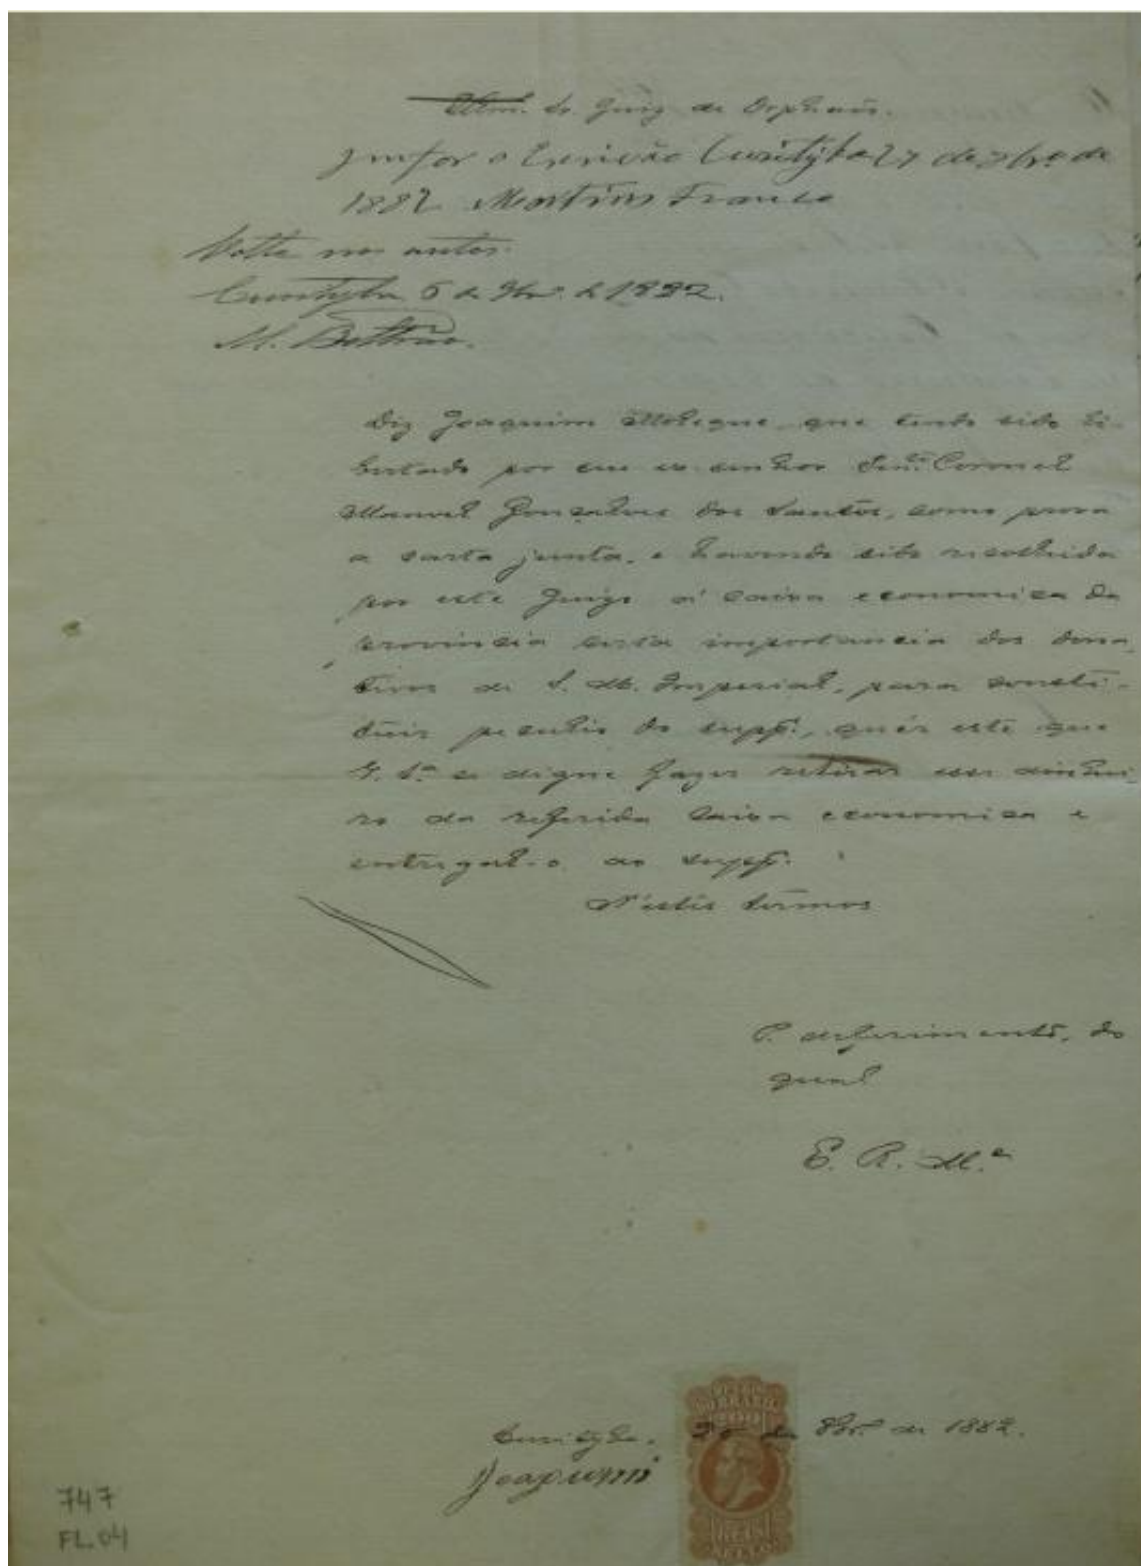 Illmo. Sr. Juiz de Orphaõs.
Infor o Escrivão Curityba 27 de 7bro. de
1882 Martins Franco
Volte nos autos.
Curityba 5 de 9bro. de 1882.
M. Beltrão.
Diz Joaquim Moleque, que tendo sido li-
bertado por seu ex-senhor Tene. Coronel
Manoel Gonçalves dos Santos, como prova
a carta junta, e havendo sido recolhida
por este Juizo á Caixa economica da
provincia certa importancia dos dona-
tivos de S. M. Imperial, para consti-
tuir peculio do suppe., quer este que
V. Sa. se digne fazer retirar esse dinhei-
ro da referida Caixa economica e
entregal-o ao suppe.
N'estes termos
P. deferimento, do
qual
E. R. Mce
Curityba, de 8bro. de 1882.
Joaquim
DO BRAZIL
200
REIS
747
FL.04